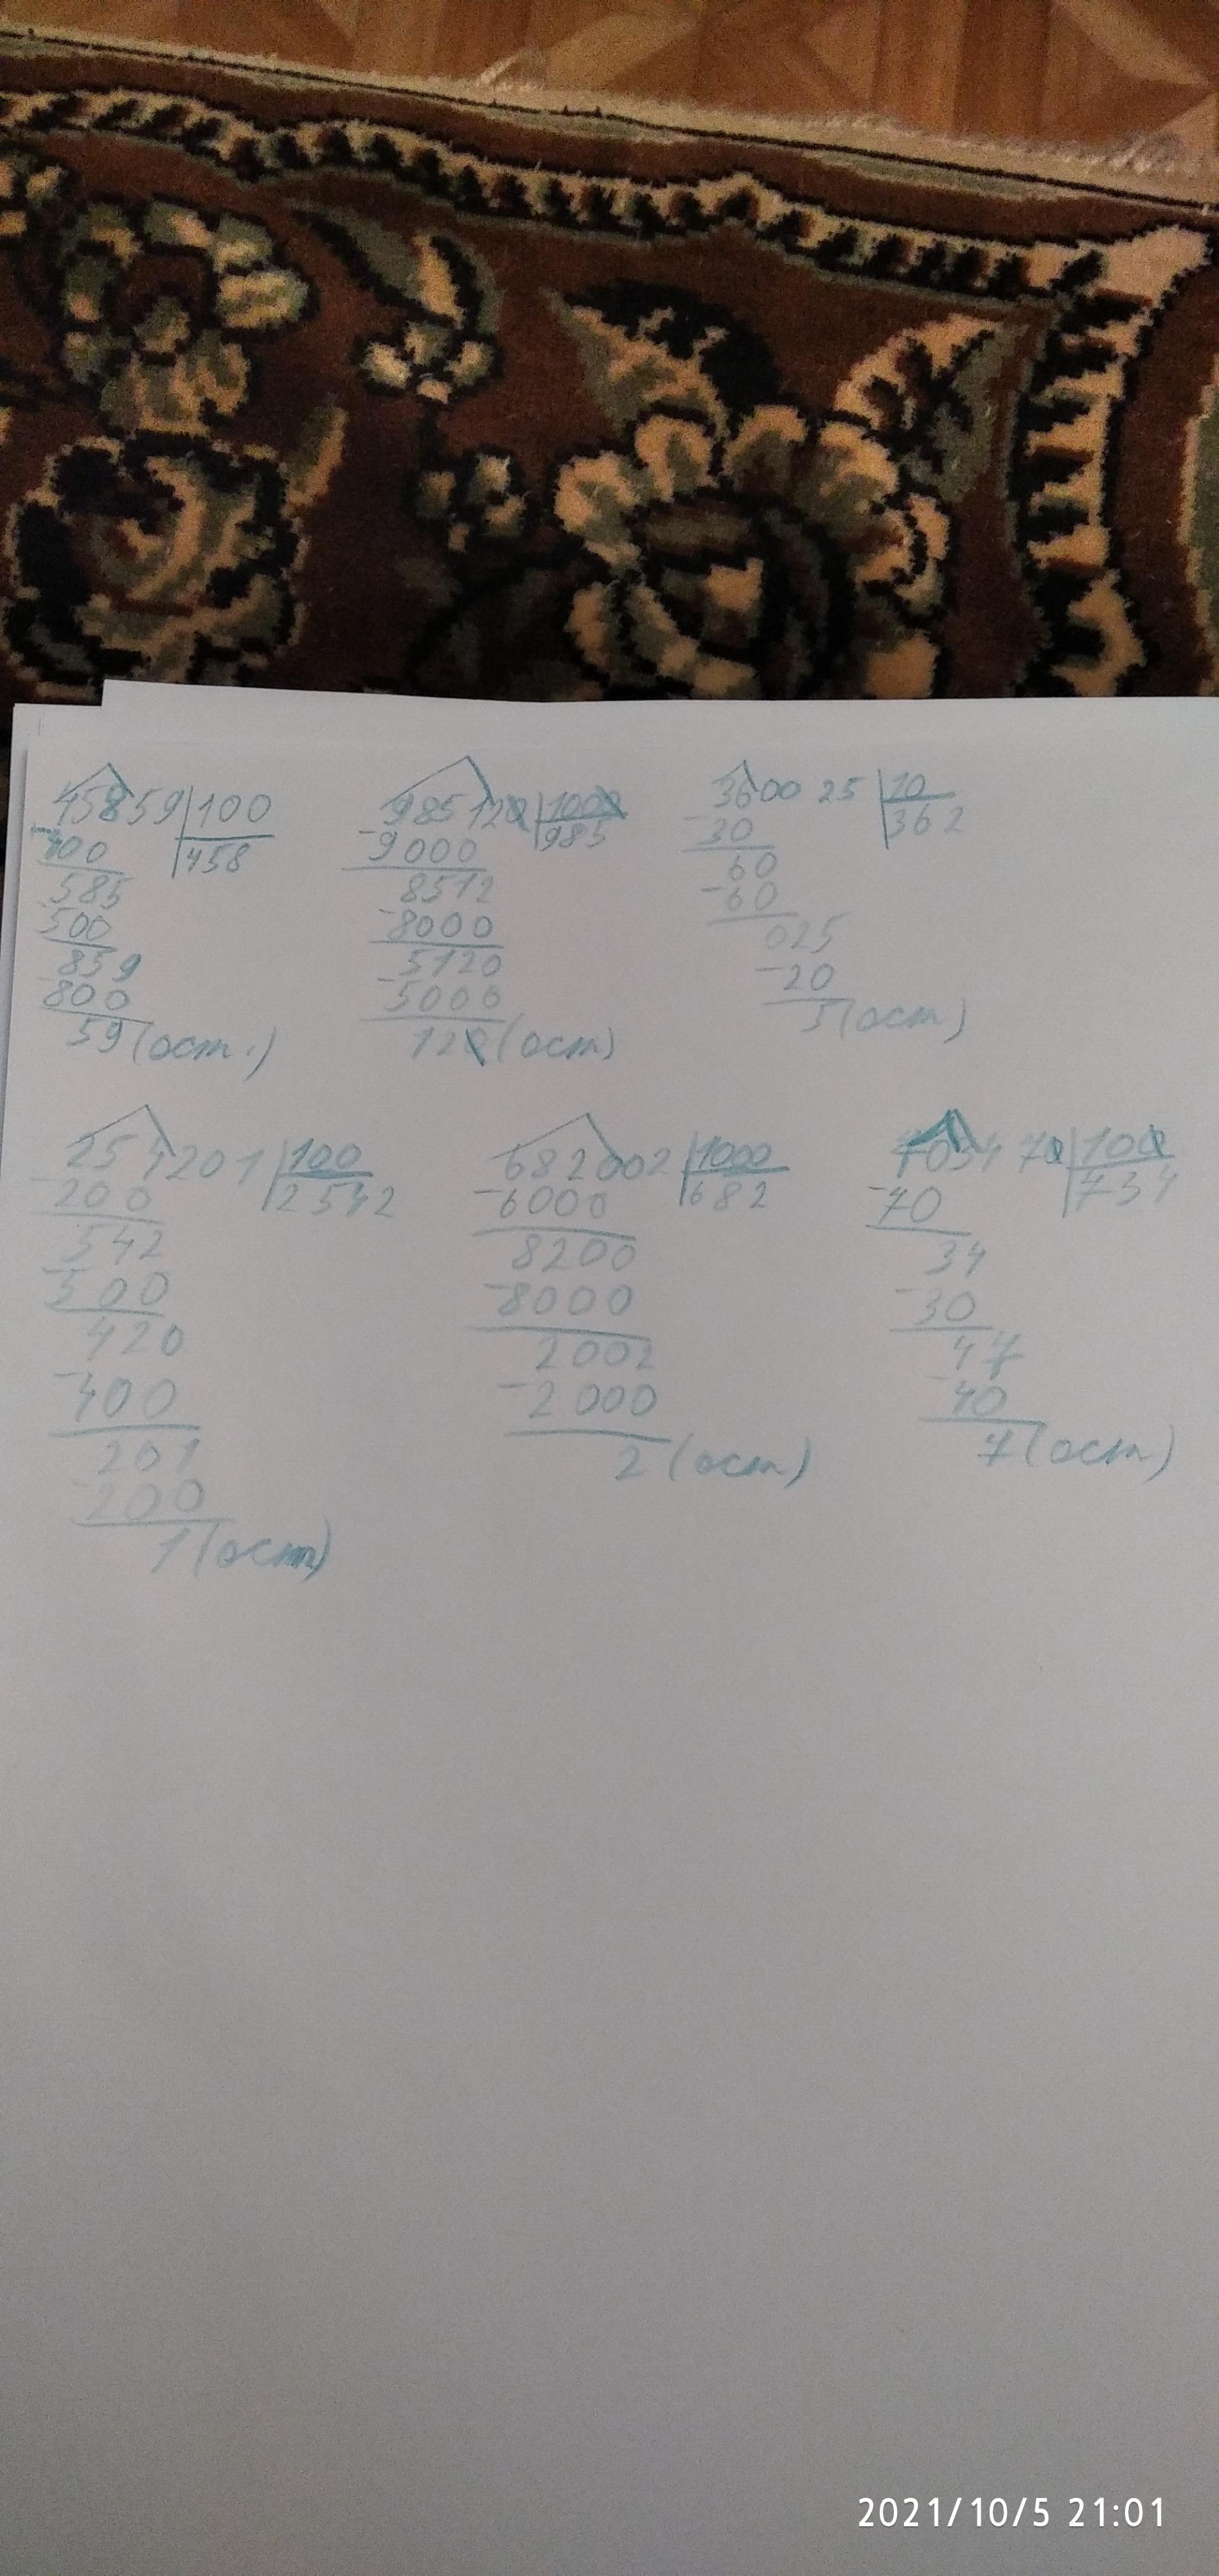 45859 100 985120 1000 3600 25 10
400 458 9000 985 30 362
585 8512 60
500 8000 60
859 5120 025
800 5000 20
59 (ост.) 120 (ост) 5 (ост)
254201 100 682002 1000 703470 100
200 2542 6000 682 70 734
542 8200 34
500 8000 30
420 2002 47
400 2000 40
201 2 (ост) 7 (ост)
200
1 (ост)
2021/10/5 21:01